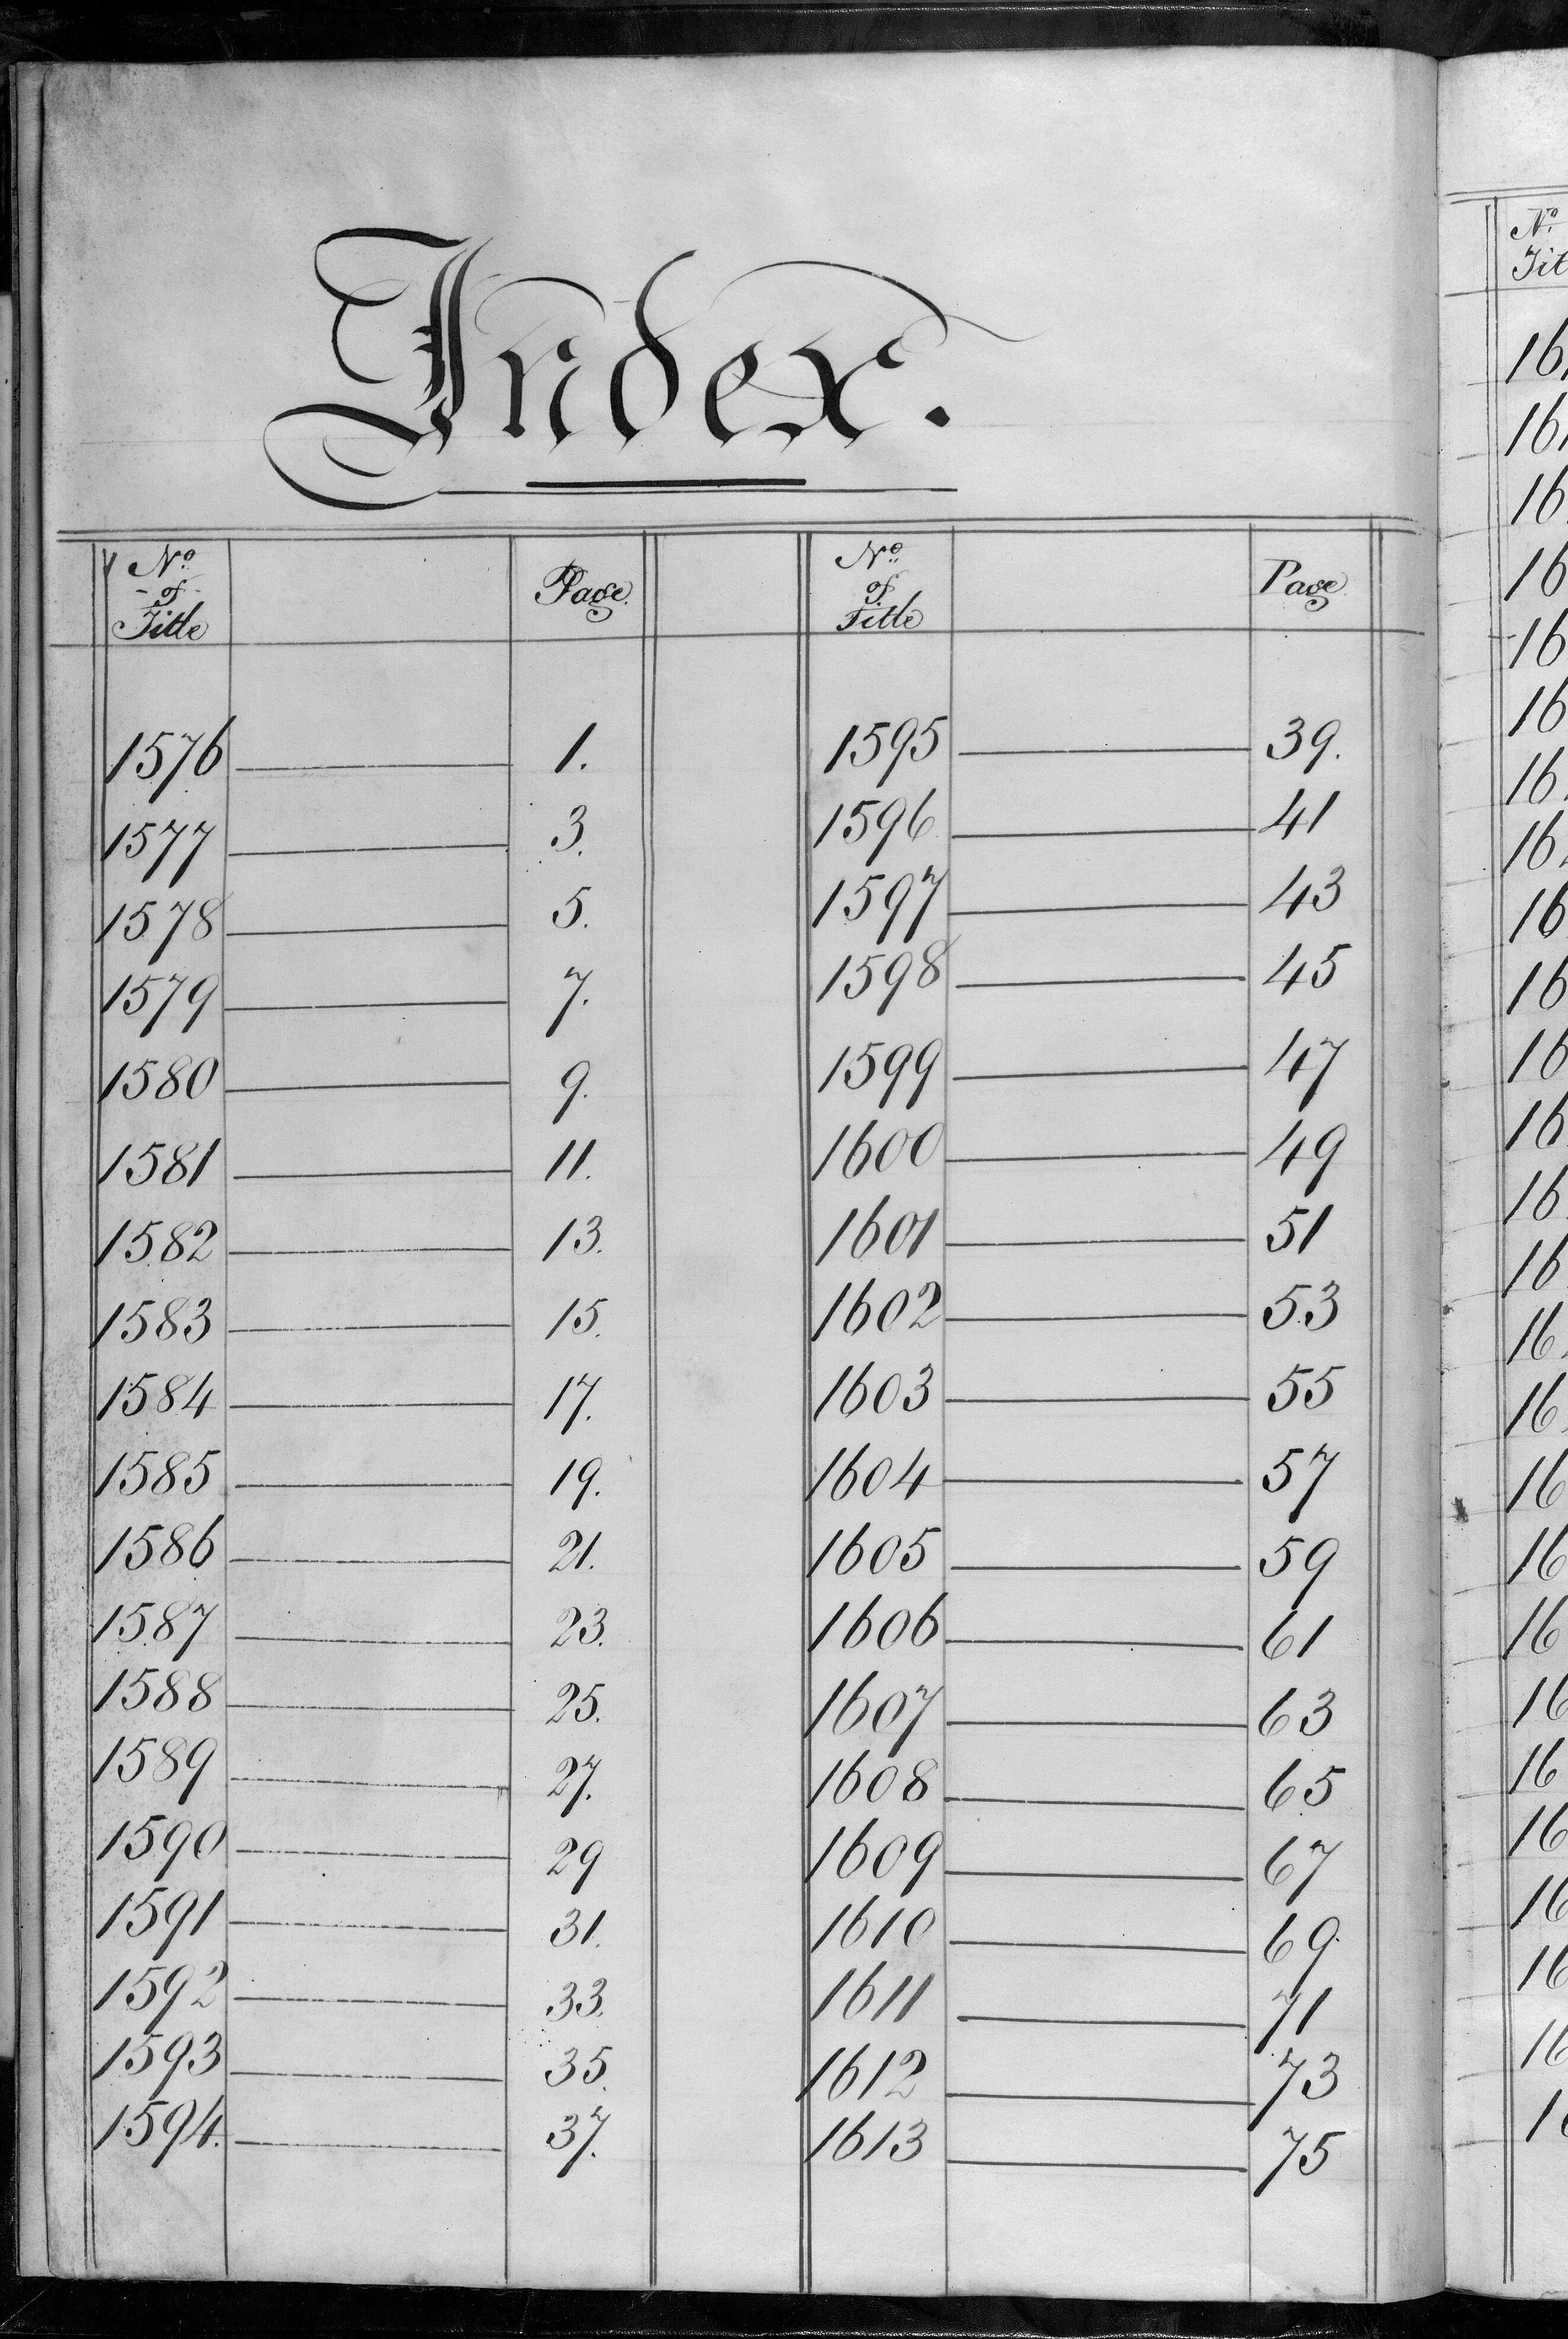 Index.
No. of Title Page No. of Title Page
1576 1. 1595 39.
1577 3. 1596 41
1578 5. 1597 43
1579 7. 1598 45
1580 9. 1599 47
1581 11. 1600 49
1582 13. 1601 51
1583 15. 1602 53
1584 17. 1603 55
1585 19. 1604 57
1586 21. 1605 59
1587 23. 1606 61
1588 25. 1607 63
1589 27. 1608 65
1590 29 1609 67
1591 31. 1610 69.
1592 33. 1611 71
1593 35. 1612 73
1594. 37. 1613 75